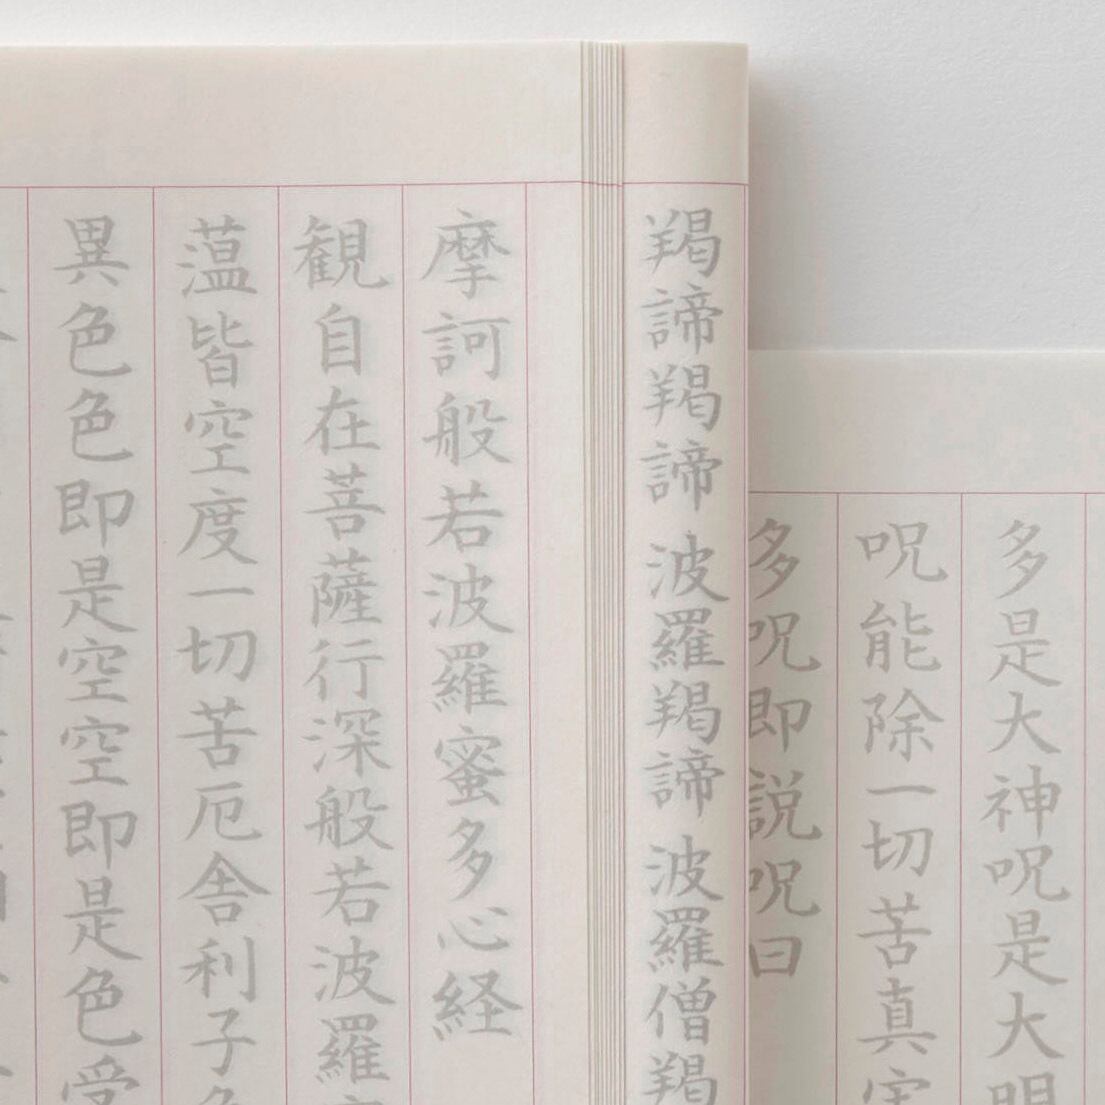 多是大神呪是大明
呪能除一切苦真実
多呪即説呪曰
羯諦羯諦波羅羯諦波羅僧羯
摩訶般若波羅蜜多心経
観自在菩薩行深般若波羅
薀皆空度一切苦厄舎利子
異色色即是空空即是色受